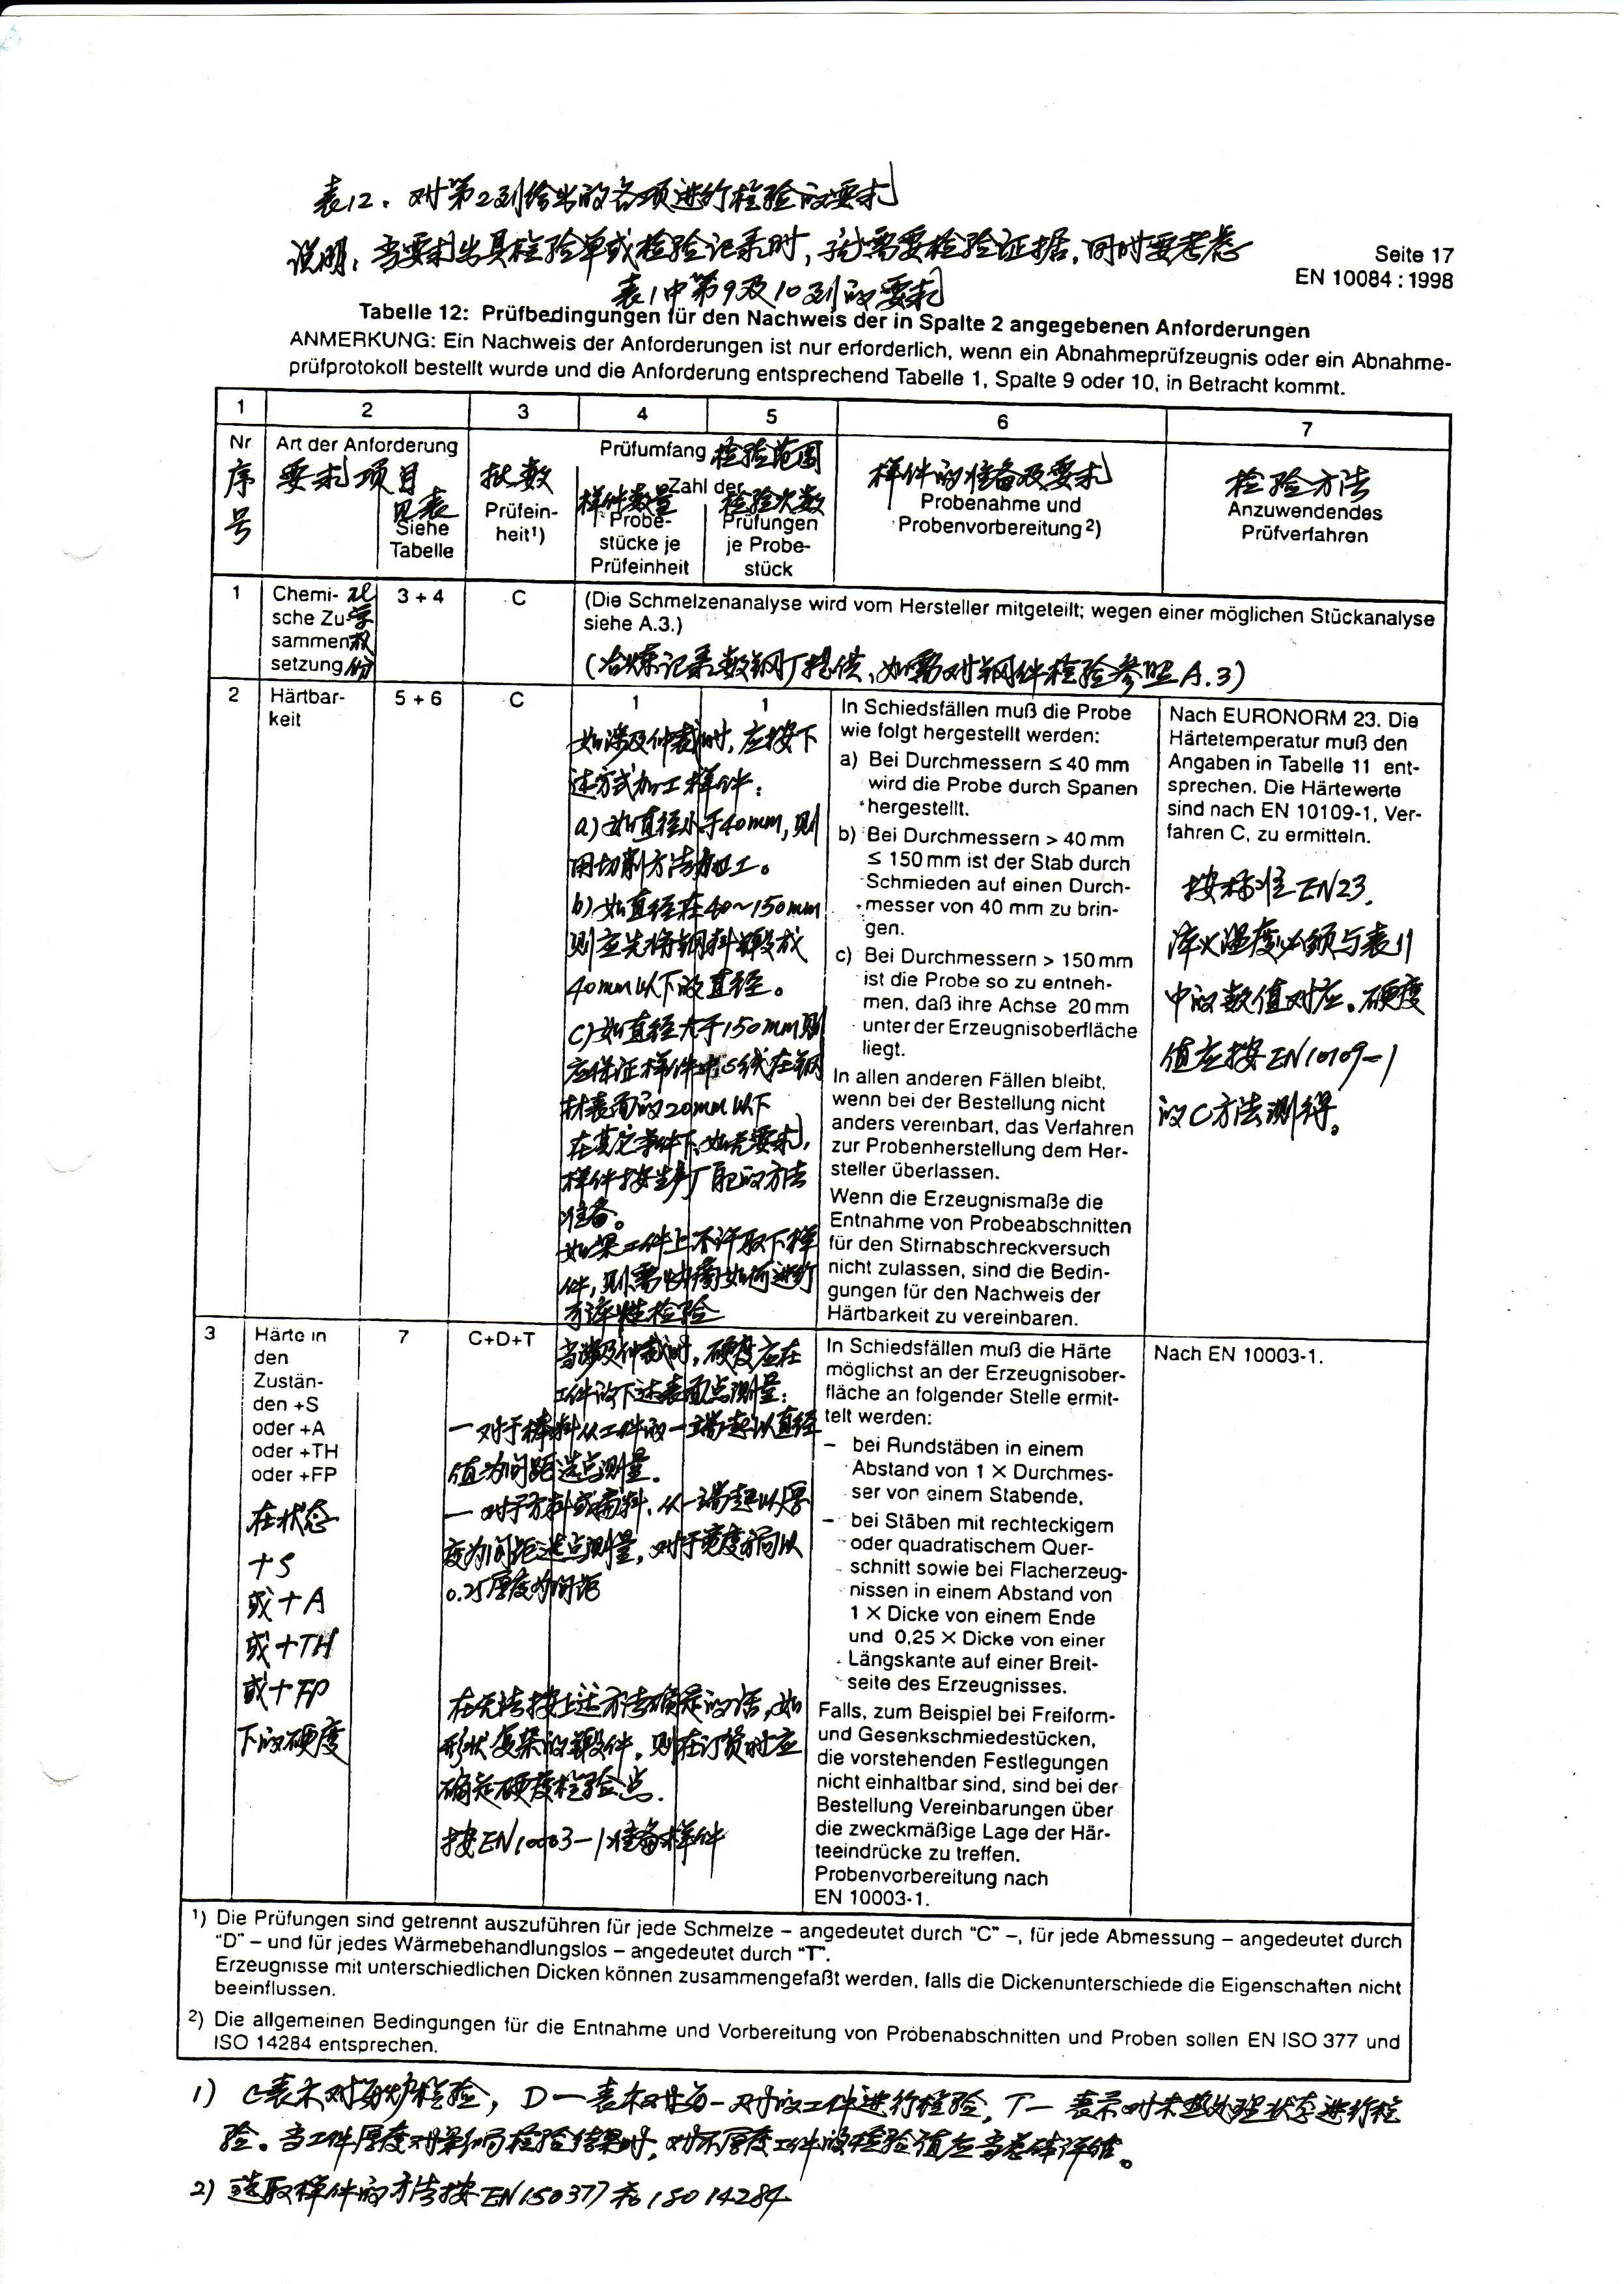 表12、对第2列给出的各项进行检验的要求
说明：当要求出具检验单或检验记录时，就需要检验证据，同时要考虑
表1中第9及10列的要求
Seite 17
EN 10084 : 1998
Tabelle 12: Prüfbedingungen für den Nachweis der in Spalte 2 angegebenen Anforderungen
ANMERKUNG: Ein Nachweis der Anforderungen ist nur erforderlich, wenn ein Abnahmeprüfzeugnis oder ein Abnahme-
prüfprotokoll bestellt wurde und die Anforderung entsprechend Tabelle 1, Spalte 9 oder 10, in Betracht kommt.
1 2 3 4 5 6 7
Nr
序
号
Art der Anforderung
要求项目
见表
Siehe
Tabelle
批数
Prüfein-
heit¹)
Prüfumfang 检验范围
Zahl der
样件数量
Probe-
stücke je
Prüfeinheit
检验次数
Prüfungen
je Probe-
stück
样件的准备及要求
Probenahme und
Probenvorbereitung²)
检验方法
Anzuwendendes
Prüfverfahren
1
Chemi- 化
sche Zu- 学
sammen
setzung
3 + 4
C
(Die Schmelzenanalyse wird vom Hersteller mitgeteilt; wegen einer möglichen Stückanalyse
siehe A.3.)
(冶炼记录数钢厂提供、如需对钢件检验参照A.3)
2
Härtbar-
keit
5 + 6
C
1
1
如涉及仲裁时，应按下
述方式加工样件：
a) 如直径小于40mm，则
用切削方法加工。
b) 如直径在40~150mm
则应先将钢料锻成
40mm以下的直径。
c) 如直径大于150mm则
应保证样件中心线在钢
材表面的20mm以下
在其它条件下，如无要求，
样件按生产厂的方法
准备。
如果工件上不许取下样
件，则需协商如何进行
检验
In Schiedsfällen muß die Probe
wie folgt hergestellt werden:
a) Bei Durchmessern ≤ 40 mm
wird die Probe durch Spanen
hergestellt.
b) Bei Durchmessern > 40 mm
≤ 150 mm ist der Stab durch
Schmieden auf einen Durch-
messer von 40 mm zu brin-
gen.
c) Bei Durchmessern > 150 mm
ist die Probe so zu entneh-
men, daß ihre Achse 20 mm
unter der Erzeugnisoberfläche
liegt.
In allen anderen Fällen bleibt,
wenn bei der Bestellung nicht
anders vereinbart, das Verfahren
zur Probenherstellung dem Her-
steller überlassen.
Wenn die Erzeugnismaße die
Entnahme von Probeabschnitten
für den Stirnabschreckversuch
nicht zulassen, sind die Bedin-
gungen für den Nachweis der
Härtbarkeit zu vereinbaren.
Nach EURONORM 23. Die
Härtetemperatur muß den
Angaben in Tabelle 11 ent-
sprechen. Die Härtewerte
sind nach EN 10109-1, Ver-
fahren C, zu ermitteln.
按标准EN23.
淬火温度必须与表11
中的数值对应。硬度
值应按EN10109-1
的C方法测得。
3
Härte in
den
Zustän-
den +S
oder +A
oder +TH
oder +FP
在状态
+S
或+A
或+TH
或+FP
下的硬度
7
C+D+T
当涉及仲裁时，硬度应在
工件的下述表面点测量：
一对于棒料从工件的一端起以直径
值为间距选点测量.
一对于方料或扁料，从一端起以厚
度为间距选点测量，对于宽度方向以
0.25厚度为间距
在无法按上述方法确定的话，如
形状复杂的锻件，则在订货时应
确定硬度检验点.
按EN10003-1准备样件
In Schiedsfällen muß die Härte
möglichst an der Erzeugnisober-
fläche an folgender Stelle ermit-
telt werden:
– bei Rundstäben in einem
Abstand von 1 × Durchmes-
ser von einem Stabende,
– bei Stäben mit rechteckigem
oder quadratischem Quer-
schnitt sowie bei Flacherzeug-
nissen in einem Abstand von
1 × Dicke von einem Ende
und 0,25 × Dicke von einer
Längskante auf einer Breit-
seite des Erzeugnisses.
Falls, zum Beispiel bei Freiform-
und Gesenkschmiedestücken,
die vorstehenden Festlegungen
nicht einhaltbar sind, sind bei der
Bestellung Vereinbarungen über
die zweckmäßige Lage der Här-
teeindrücke zu treffen.
Probenvorbereitung nach
EN 10003-1.
Nach EN 10003-1.
¹) Die Prüfungen sind getrennt auszuführen für jede Schmelze – angedeutet durch “C” –, für jede Abmessung – angedeutet durch
“D” – und für jedes Wärmebehandlungslos – angedeutet durch “T”.
Erzeugnisse mit unterschiedlichen Dicken können zusammengefaßt werden, falls die Dickenunterschiede die Eigenschaften nicht
beeinflussen.
²) Die allgemeinen Bedingungen für die Entnahme und Vorbereitung von Probenabschnitten und Proben sollen EN ISO 377 und
ISO 14284 entsprechen.
1) C表示对每炉检验，D一表示对每一尺寸的工件进行检验，T一表示对热处理状态进行检
验。当工件厚度影响检验结果时，对不厚度工件的检验值应当总体评估。
2) 选取样件的方法按EN ISO 377和ISO 14284